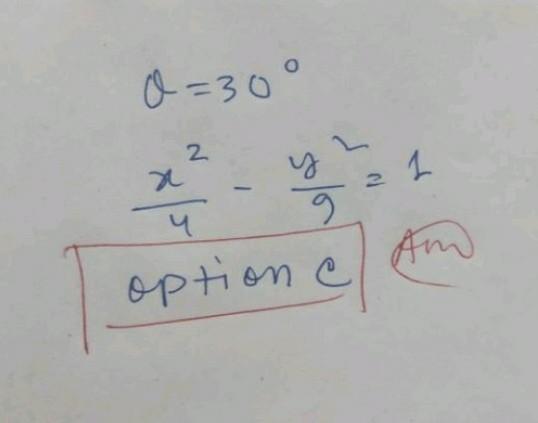 θ = 30°
x²/4 - y²/9 = 1
option c
Ans